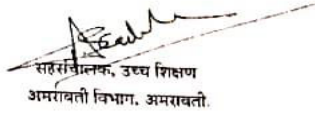 सहसंचालक, उच्च शिक्षण
अमरावती विभाग. अमरावती.